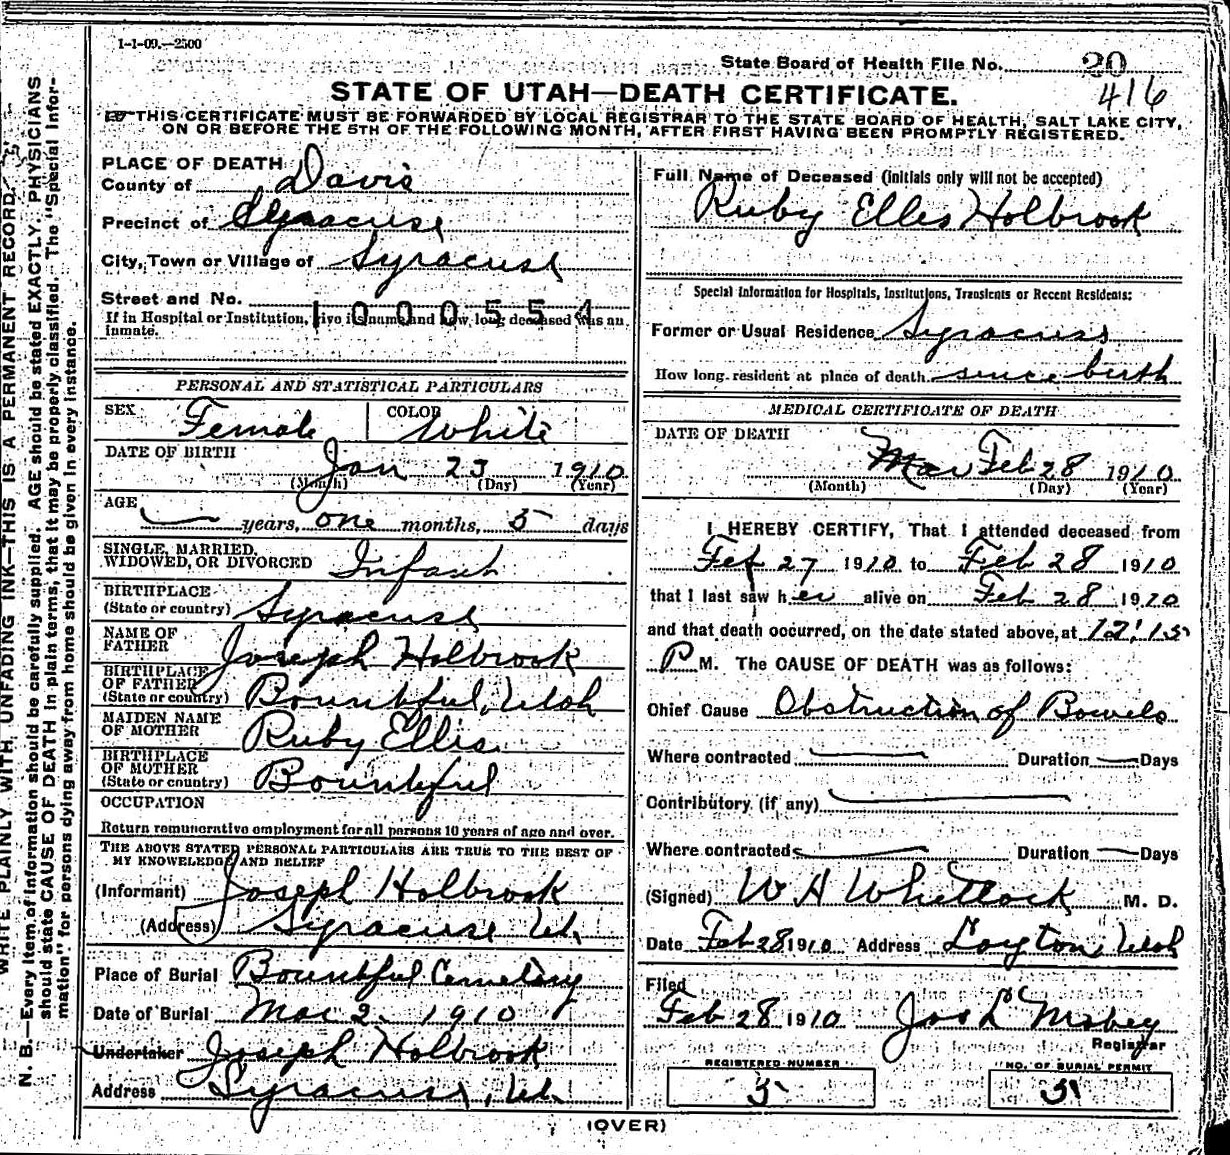 1-1-09.—2500
State Board of Health File No. 20
416
STATE OF UTAH—DEATH CERTIFICATE.
THIS CERTIFICATE MUST BE FORWARDED BY LOCAL REGISTRAR TO THE STATE BOARD OF HEALTH, SALT LAKE CITY,
ON OR BEFORE THE 5TH OF THE FOLLOWING MONTH, AFTER FIRST HAVING BEEN PROMPTLY REGISTERED.
PLACE OF DEATH
County of Davis
Precinct of Syracuse
City, Town or Village of Syracuse
Street and No.
1000554
If in Hospital or Institution, give its name and how long deceased was an
inmate.
PERSONAL AND STATISTICAL PARTICULARS
SEX Female COLOR White
DATE OF BIRTH
Jan 23 1910
(Month) (Day) (Year)
AGE
years, one months, 5 days
SINGLE, MARRIED,
WIDOWED, OR DIVORCED Infant
BIRTHPLACE
(State or country) Syracuse
NAME OF
FATHER Joseph Holbrook
BIRTHPLACE
OF FATHER
(State or country) Bountiful, Utah
MAIDEN NAME
OF MOTHER Ruby Ellis
BIRTHPLACE
OF MOTHER
(State or country) Bountiful
OCCUPATION
Return remunerative employment for all persons 10 years of age and over.
THE ABOVE STATED PERSONAL PARTICULARS ARE TRUE TO THE BEST OF
MY KNOWLEDGE AND BELIEF
(Informant) Joseph Holbrook
(Address) Syracuse Ut.
Place of Burial Bountiful Cemetery
Date of Burial Mar 2 1910
Undertaker Joseph Holbrook
Address Syracuse, Ut.
Full Name of Deceased (initials only will not be accepted)
Ruby Elles Holbrook
Special Information for Hospitals, Institutions, Transients or Recent Residents:
Former or Usual Residence Syracuse
How long resident at place of death since birth
MEDICAL CERTIFICATE OF DEATH
DATE OF DEATH
Mar Feb 28 1910
(Month) (Day) (Year)
I HEREBY CERTIFY, That I attended deceased from
Feb 27 1910 to Feb 28 1910
that I last saw her alive on Feb 28 1910
and that death occurred, on the date stated above, at 12:15
P M. The CAUSE OF DEATH was as follows:
Chief Cause Obstruction of Bowels
Where contracted Duration Days
Contributory (if any)
Where contracted Duration Days
(Signed) W A Whitlock M. D.
Date Feb 28 1910 Address Layton, Utah
Filed
Feb 28 1910 Jos L Mabey
Registrar
REGISTERED NUMBER
5
NO. OF BURIAL PERMIT
5
(OVER)
WRITE PLAINLY WITH UNFADING INK—THIS IS A PERMANENT RECORD.
N. B.—Every item of information should be carefully supplied. AGE should be stated EXACTLY. PHYSICIANS
should state CAUSE OF DEATH in plain terms, that it may be properly classified. The "Special Infor-
mation" for persons dying away from home should be given in every instance.